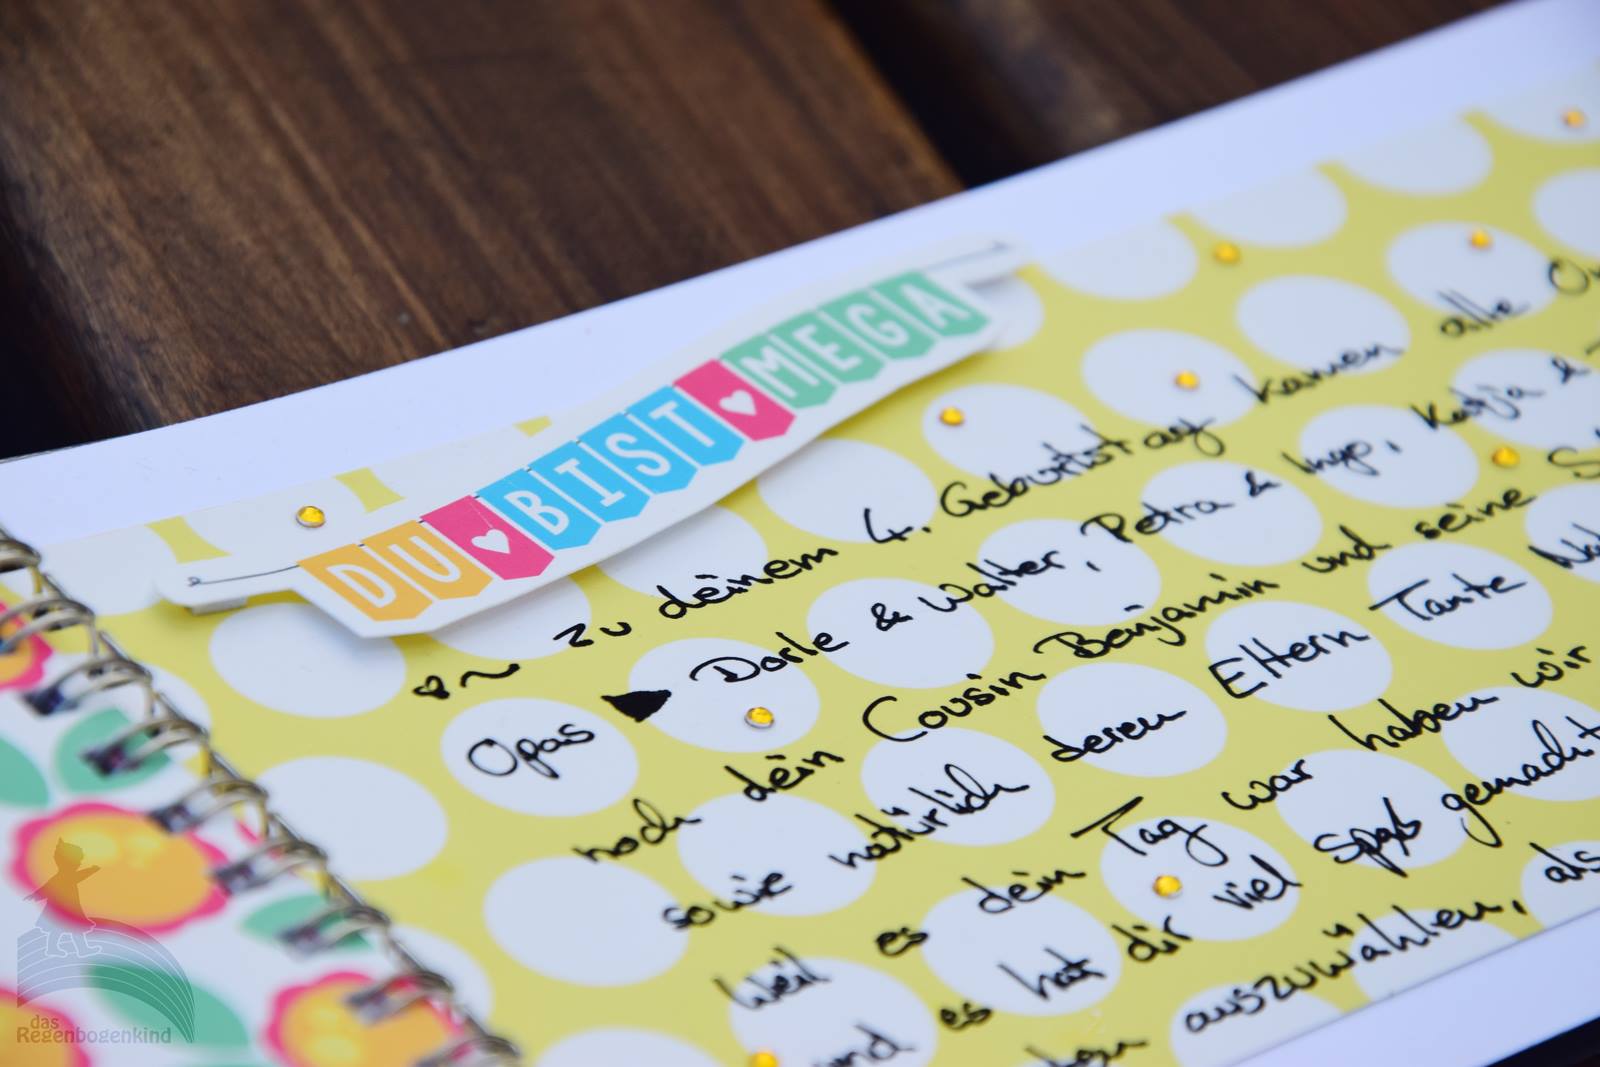 DU BIST MEGA
zu deinem 4. Geburtstag kamen alle
Opas Dorle & Walter, Petra & Ingo, Katja &
noch dein Cousin Benjamin und seine
sowie natürlich deren Eltern Tante
Weil es dein Tag war haben wir
und es hat dir viel Spaß gemacht
auszuwählen, als
das
Regenbogenkind